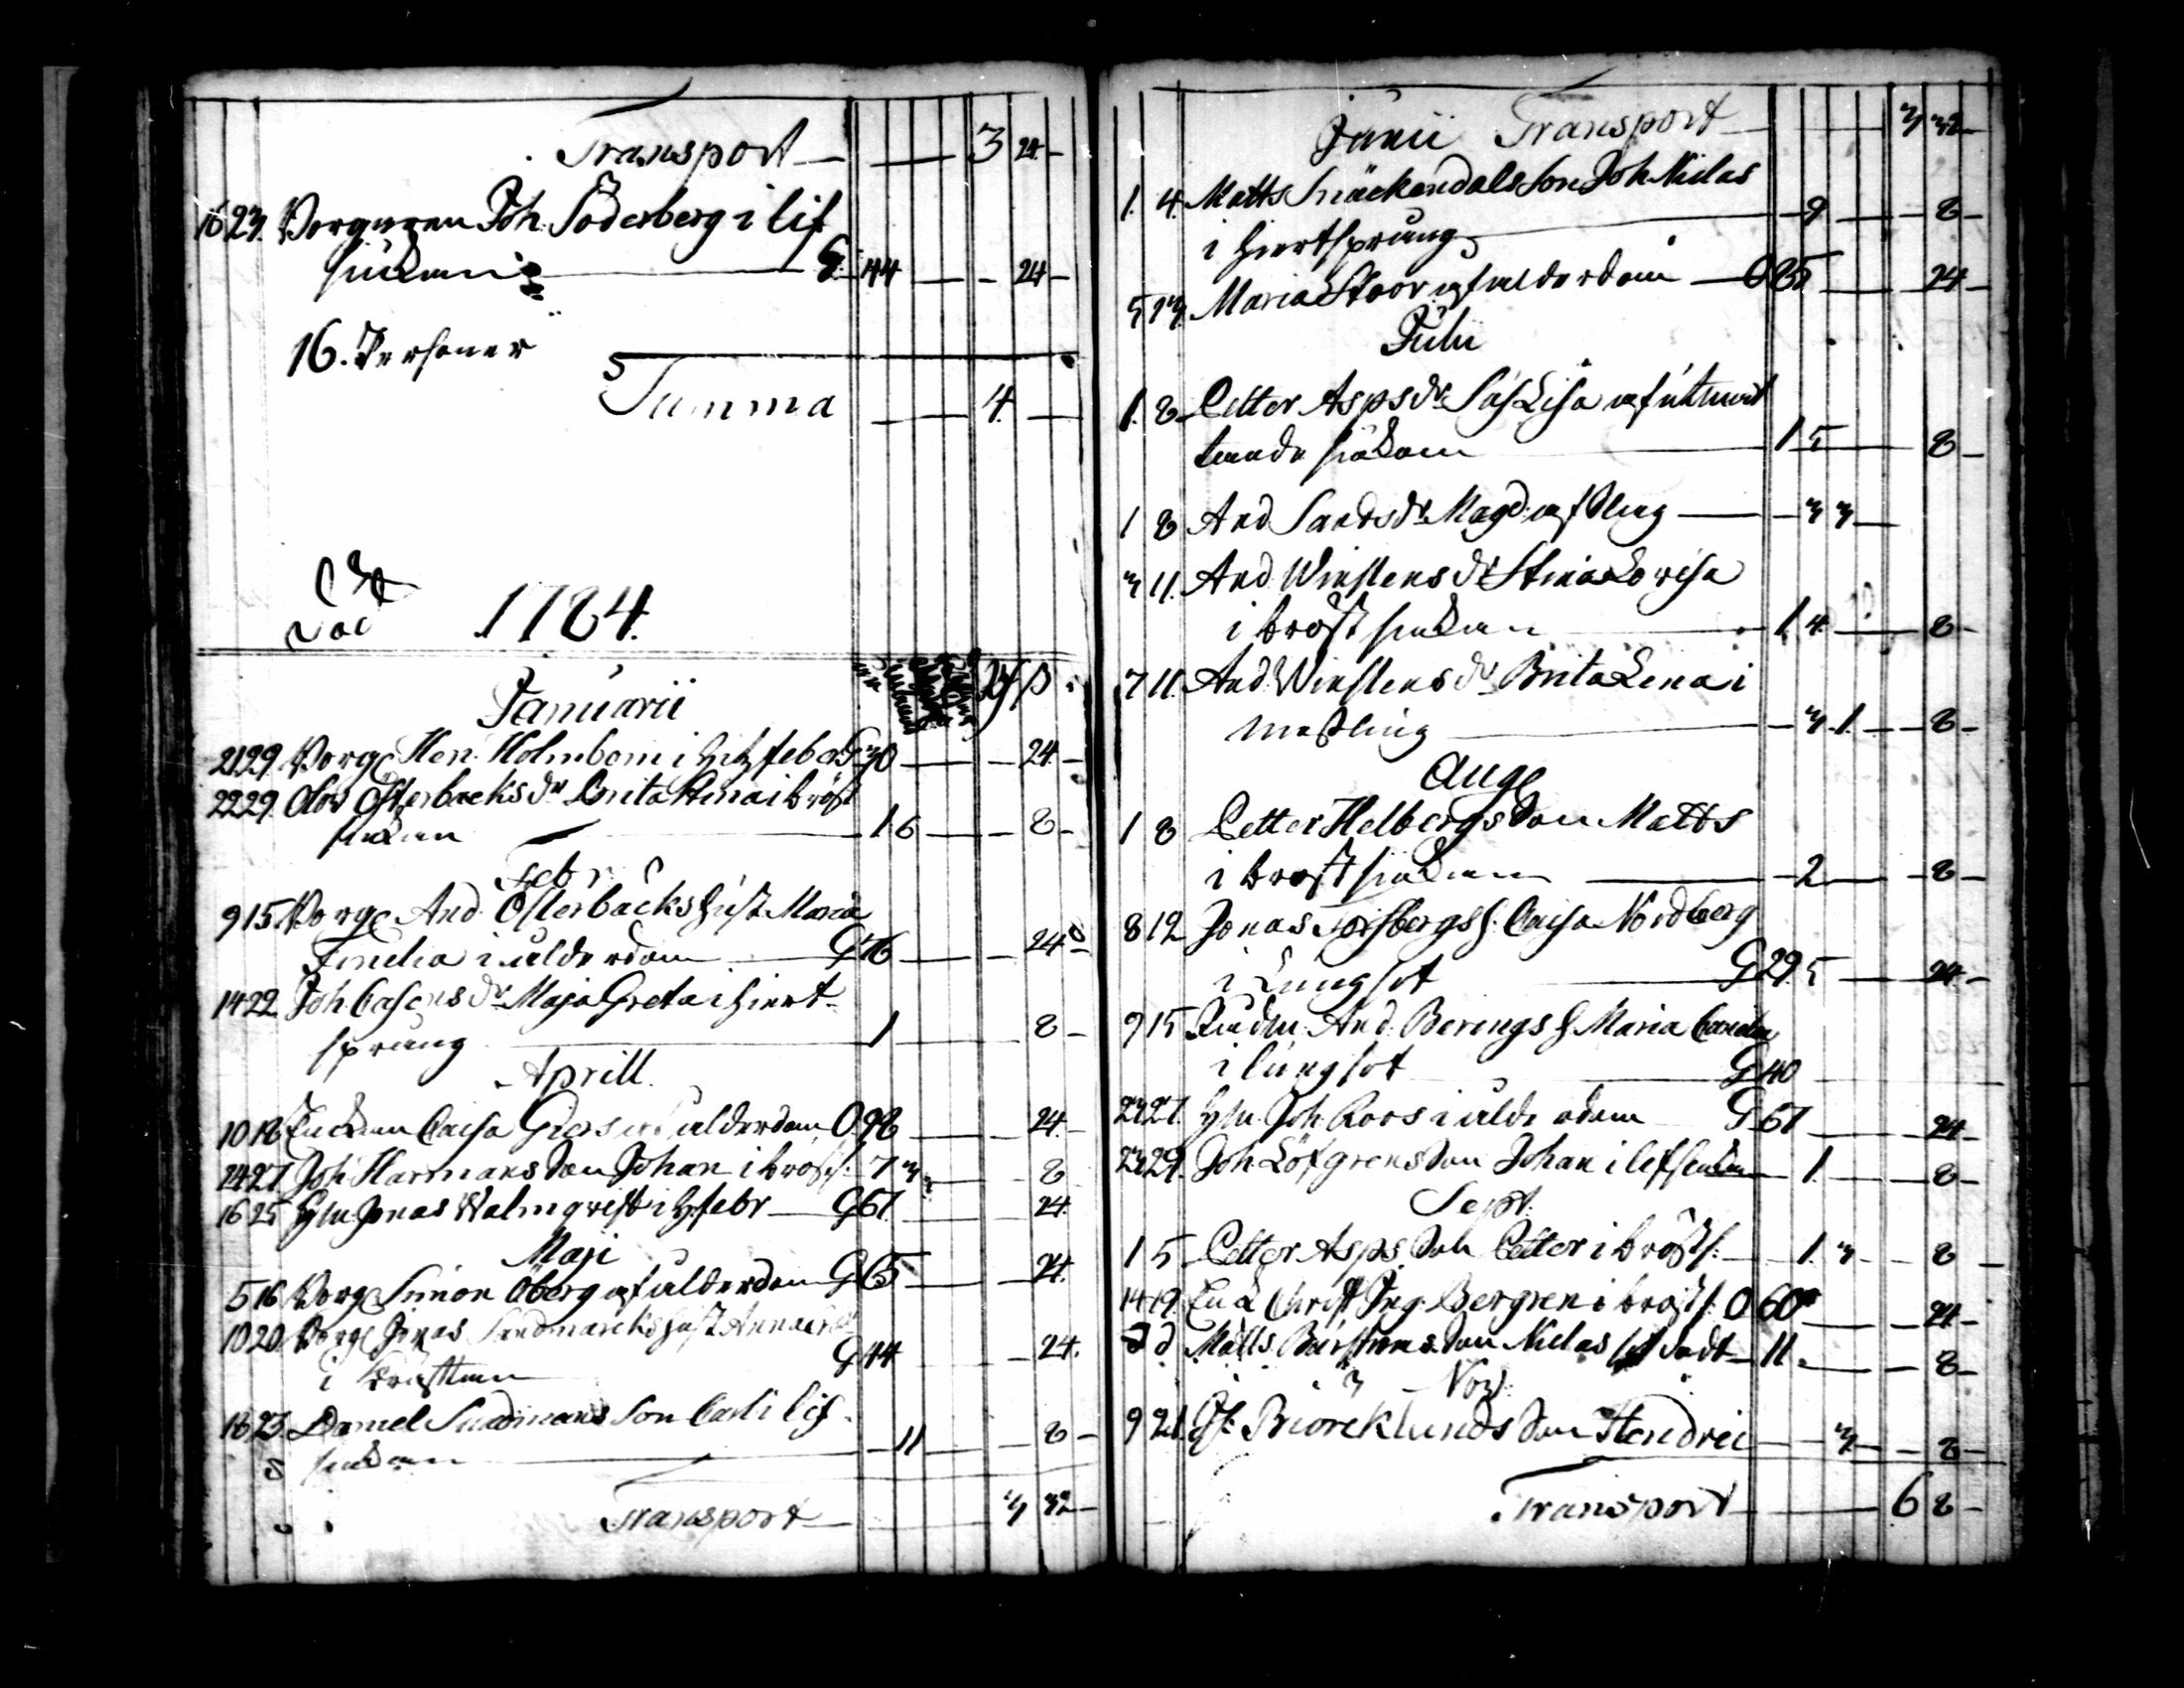 Transport — 3 24 —
16 23. Borgaren Joh. Söderberg i lif
siukan G. 44 — 24 —
16. Personer
Summa — 4. —
1784.
Januarii
21 29. Borg. Hen. Holmbom i hitz feber G 30 — 24 —
22 29. Olov Österbacks dr Brita Stina i bröst
siukan 1 6 — 8 —
Febr.
9 15. Borg. And. Österbacks hust. Maria
i ålderdom G 76 — 24 —
14 22. Joh. dr Maja Greta i hiert-
sprung 1 — 8 —
Aprill.
10 18 Caisa ålderdom O. 98 — 24 —
14 27. Joh. Harmans son Johan i bröst. 7 3 — 8
16 25 Jonas Walmqvist i h. febr G 67. — 24.
Maji
5 16 Borg. Simon Öberg af ålderdom G 65 — 24.
10 20. Borg. Jonas Sandmarks hust. Anna
i G 44 — 24.
18 23. Daniel son Carl i lif-
siukan 11 — 8 —
Transport — 3 32 —
Junii Transport — 3 32 —
1. 4. Matts son Joh. Niclas
i hiertsprung 9 — 8 —
5 13. Maria Stoor af ålderdom — O 85 — 24 —
Julii
1. 8 Petter Asps dr Lisa af uttwin
ande siukdom 1 5 — 8 —
1 8 And. Sands dr Magd. af Sling — 3 3 —
3 11. And. Winstens dr Stina Lovisa
i bröst siukan 1. 4. — 8 —
7 11. And. Winstens dr Brita Lena i
Messling — 3. 1. — 8 —
Aug.
1 8 Petter Helbergs son Matts
i bröst siukan — 2 — 8 —
8 12 Jonas Forsbergs h. Caisa Nordberg
i Lungsot G 29. 5 — 24 —
9 15 And. Berengs h. Maria
i lungsot G 40
23 27. Joh. Roos i ålderdom G 67 — 24 —
23 29. Joh. Löfgrens son Johan i lefsiukan — 1. — 8 —
Sept.
1 5 Petter Asps son Petter i bröst. — 1. 3 — 8 —
14 19. Christ. Ing. Bergren i bröst. O 60 — 24 —
d d Matts son Niclas — 11. — 8 —
Nov.
9 21. Biörcklunds son Hendric — 3. — 8 —
Transport — 6 8 —